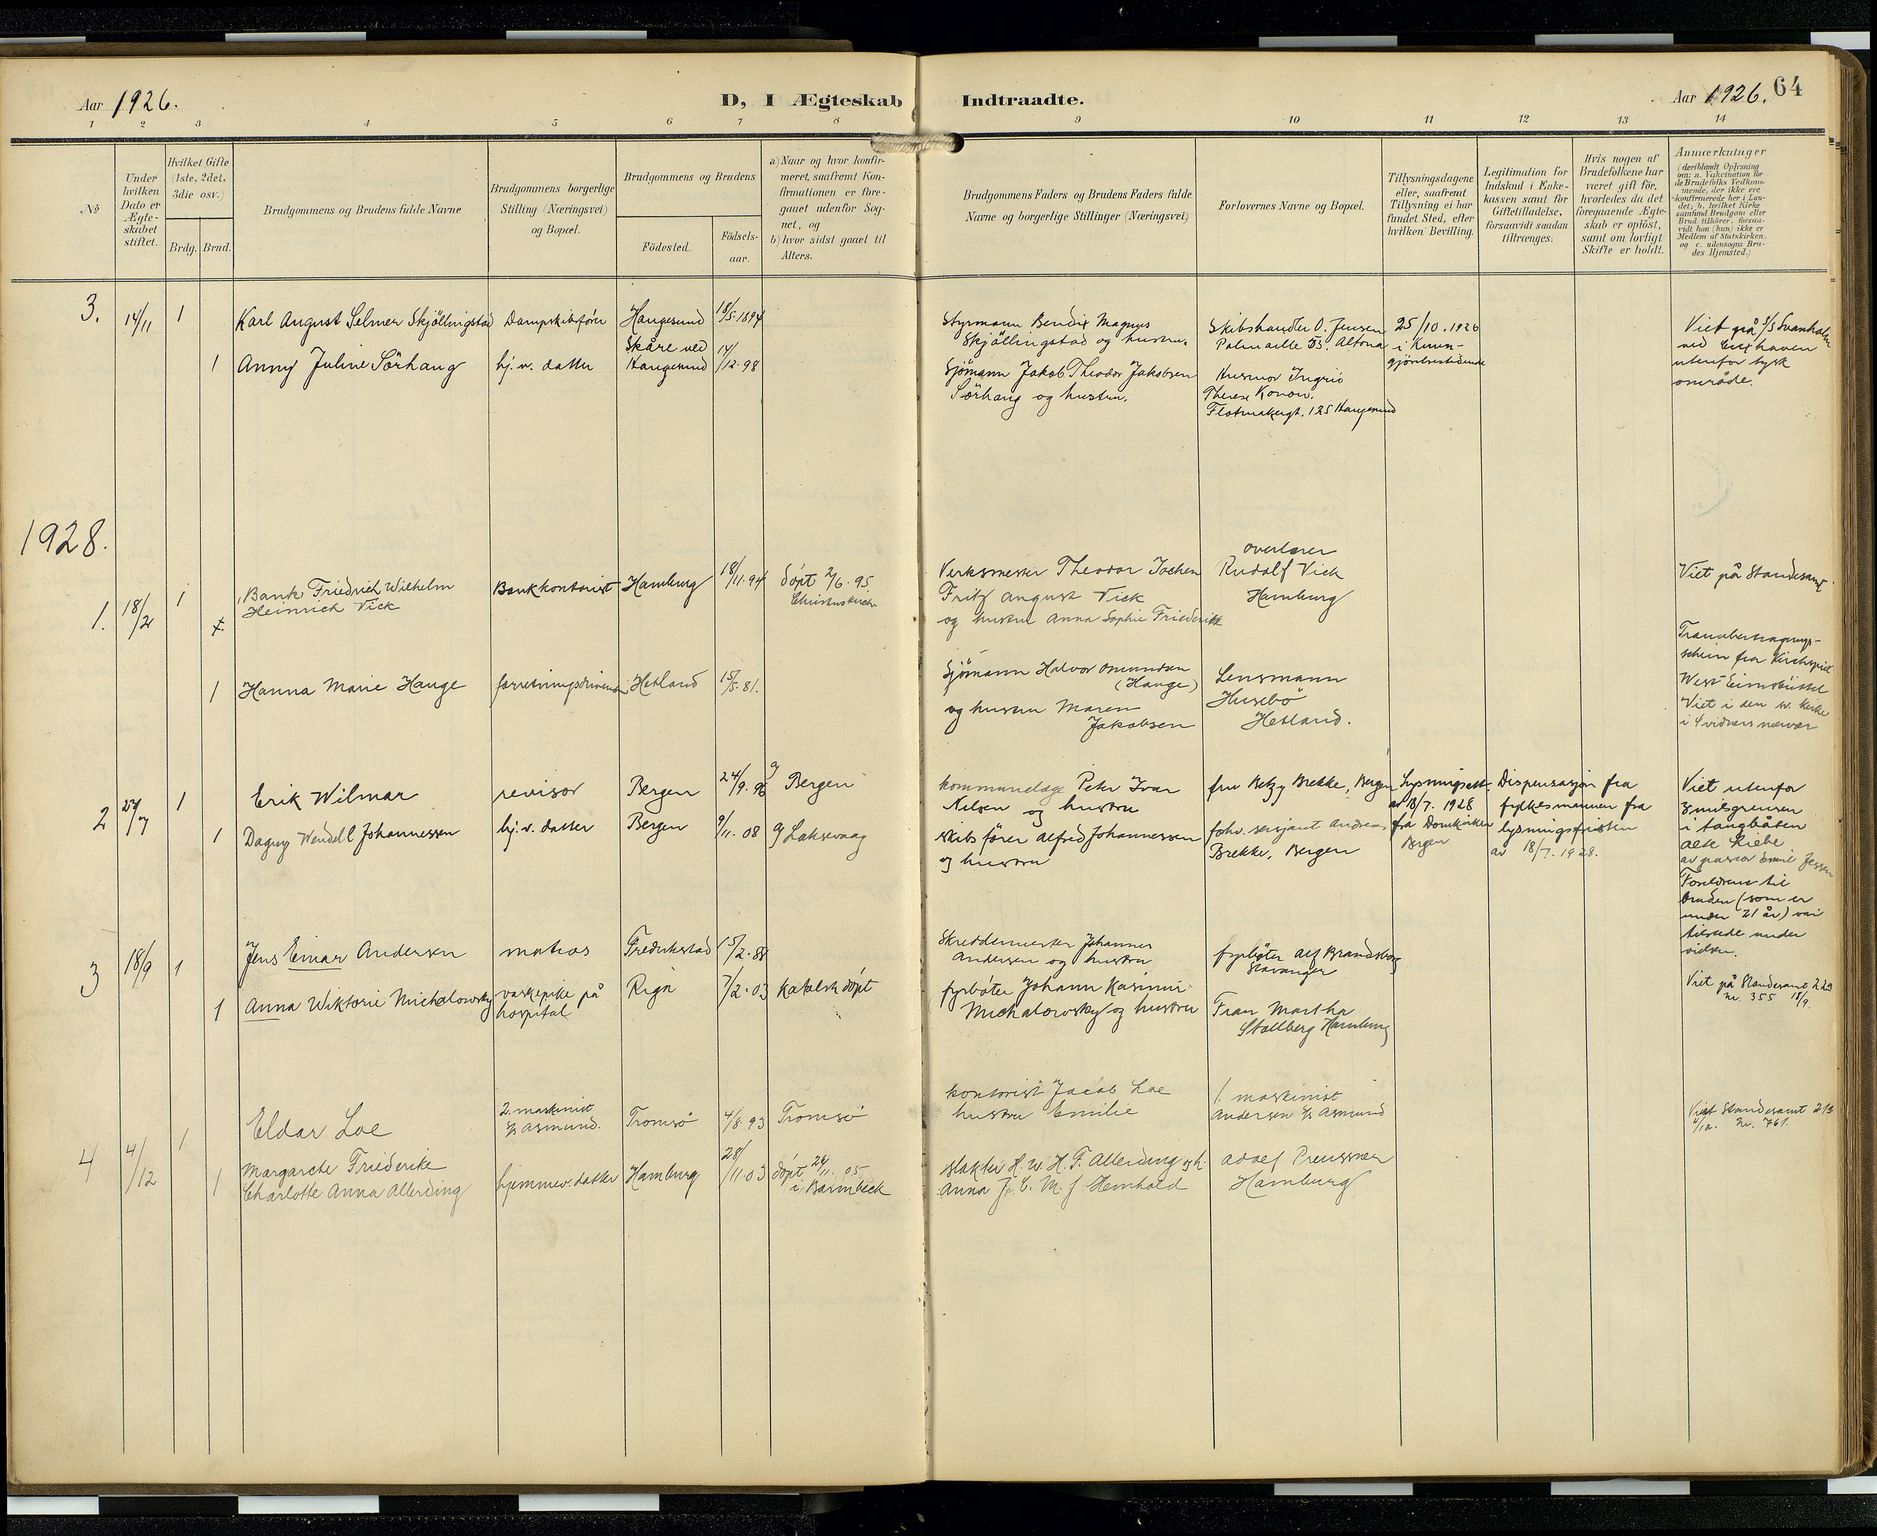 Aar 1926.
D, I Ægteskab Indtraadte.
Aar 1926. 64
1 2 3 4 5 6 7 8 9 10 11 12 13 14
No
Under hvilken Dato er Ægteskabet stiftet.
Hvilket Gifte (1ste, 2det, 3die osv.)
Brdg. Brud.
Brudgommens og Brudens fulde Navne
Brudgommens borgerlige Stilling (Næringsvei) og Bopæl.
Brudgommens og Brudens
Födested.
Födsels-aar.
a) Naar og hvor konfirmeret, saafremt Konfirmationen er foregaaet udenfor Sognet, og
b) hvor sidst gaaet til Alters.
Brudgommens Faders og Brudens Faders fulde
Navne og borgerlige Stillinger (Næringsvei)
Forlovernes Navne og Bopæl.
Tillysningsdagene eller, saafremt Tillysning ei har fundet Sted, efter hvilken Bevilling.
Legitimation for Indskud i Enkekassen samt for Giftetilladelse, forsaavidt saadan tiltrænges.
Hvis nogen af Brudefolkene har været gift för, hvorledes da det foregaaende Ægteskab er oplöst, samt om lovligt Skifte er holdt.
Anmærkninger
(deriblandt Oplysning om: a. Vakcination for de Brudefolks Vedkommende, der ikke ere konfirmerede her i Landet; b. hvilket Kirkesamfund Brudgom eller Brud tilhörer, forsaavidt han (hun) ikke er Medlem af Statskirken, og c. udensogns Brudes Hjemsted.)
3. 14/11 1 Karl August Selmer Skjöllingstad Dampskibsfører Haugesund 18/5.1894
Styrmann Bendix Magnus
Skjöllingstad og hustru.
Skibshandler O. Jensen
Palmaille 53. Altona
25/10. 1926
i Kunn-
gjörelsestidende
Viet på S/S Svanholm
ved Cuxhaven
utenfor tysk
område.
1 Anny Juline Sörhaug hj.v. datter Skåre ved
Haugesund 14/12.98
Sjömann Jakob Theodor Jakobsen
Sörhaug og hustru.
Husmor Ingrid
Therese Konow.
Flotmakergt. 125 Haugesund
1928.
1. 18/2 1 Bank Friedrich Wilhelm
Heinrich Vick
Bankkontorist Hamburg 18/11.94 döpt 2/6.95
Christuskirche
Verksmester Theodor Jochen
Fritz August Vick
og hustru Anna Sophie Friederike
overlærer
Rudolf Vick
Hamburg
Viet på Standesamt
1 Hanna Marie Hauge forretningsdrivende Hetland 15/5.81.
Sjømann Halvor Omundsen
(Hauge)
og hustru Maren
Jakobsen
Lensmann
Husebö
Hetland.
schein fra Kirchspiel
West-Eimsbüttel
Viet i den sv. kirke
i 4 vidners nærvær
2 1 Erik Wilmar revisor Bergen 24/9.96 Bergen
kommunelæge Peter Ivar
Nilsen og hustru
fru Betzy Brekke, Bergen
Lysningsatt.
av 18/7. 1928
fra Domkirken
Bergen
Dispensasjon fra
fylkesmannen fra
lysningsfristen
av 18/7. 1928.
1 Dagny Wendel Johannessen hj.v. datter Bergen 9/11.08 Laksevaag
skibsfører Alfred Johannessen
og hustru
forhv. sersjant Andreas
Brekke, Bergen
Viet utenfor
3milsgrensen
i taugbåten
Alte Liebe
av pastor Emil Jessen
Foreldrene til
bruden (som er
under 21 år) var
tilstede under
vielsen.
3 18/9 1 Jens Einar Andersen matros Fredrikstad 15/2.88
Skreddermester Johannes
Andersen og hustru
fyrböter Alf Brandsborg
Stavanger
Viet på Standesamt 22a
nr. 355 18/9.
1 Anna Wiktorie Michalowsky vaskepike på
hospital
Riga 7/2.03 katolsk döpt
fyrböter Johann Kasimir
Michalowsky og hustru
Frau Martha
Stallberg Hamburg
4 4/12 1 Eldar Loe 2. maskinist
S/S Asmund. Tromsø 4/8.93 Tromsø
kontorist Jacob Loe
hustru Emilie
1. maskinist
Andersen S/S Asmund
Viet Standesamt
4/12. Nr. 761.
1 Margarete Friederike
Charlotte Anna Allerding
hjemmev. datter Hamburg 28/11.03 döpt 26/11.05
i Barmbeck
slakter H. W. H. F. Allerding og h.
Anna J. C. M. f Hemhold
Adolf Preussner
Hamburg